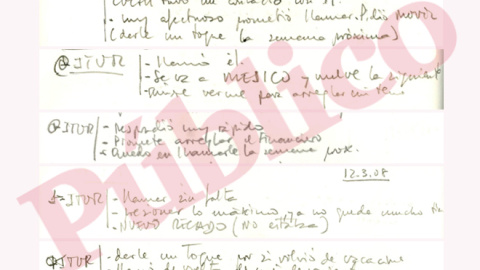 - muy afectuoso prometió llamar. Pidió movil
(darle un toque la semana próxima)
ITUR - Llamó él.
- Se va a MEJICO y vuelve la siguiente
- Quise verme para arreglar un tema
ITUR - Respondió muy rápido
- Promete arreglar el Financiero
- Quedo en llamarle la semana prox.
12.3.08
ITUR - llamar sin falta
- Presionar lo máximo, ya no queda mucho
- NUEVO RECADO (NO estaba)
ITUR - darle un Toque por si volvió de vacaciones
Público